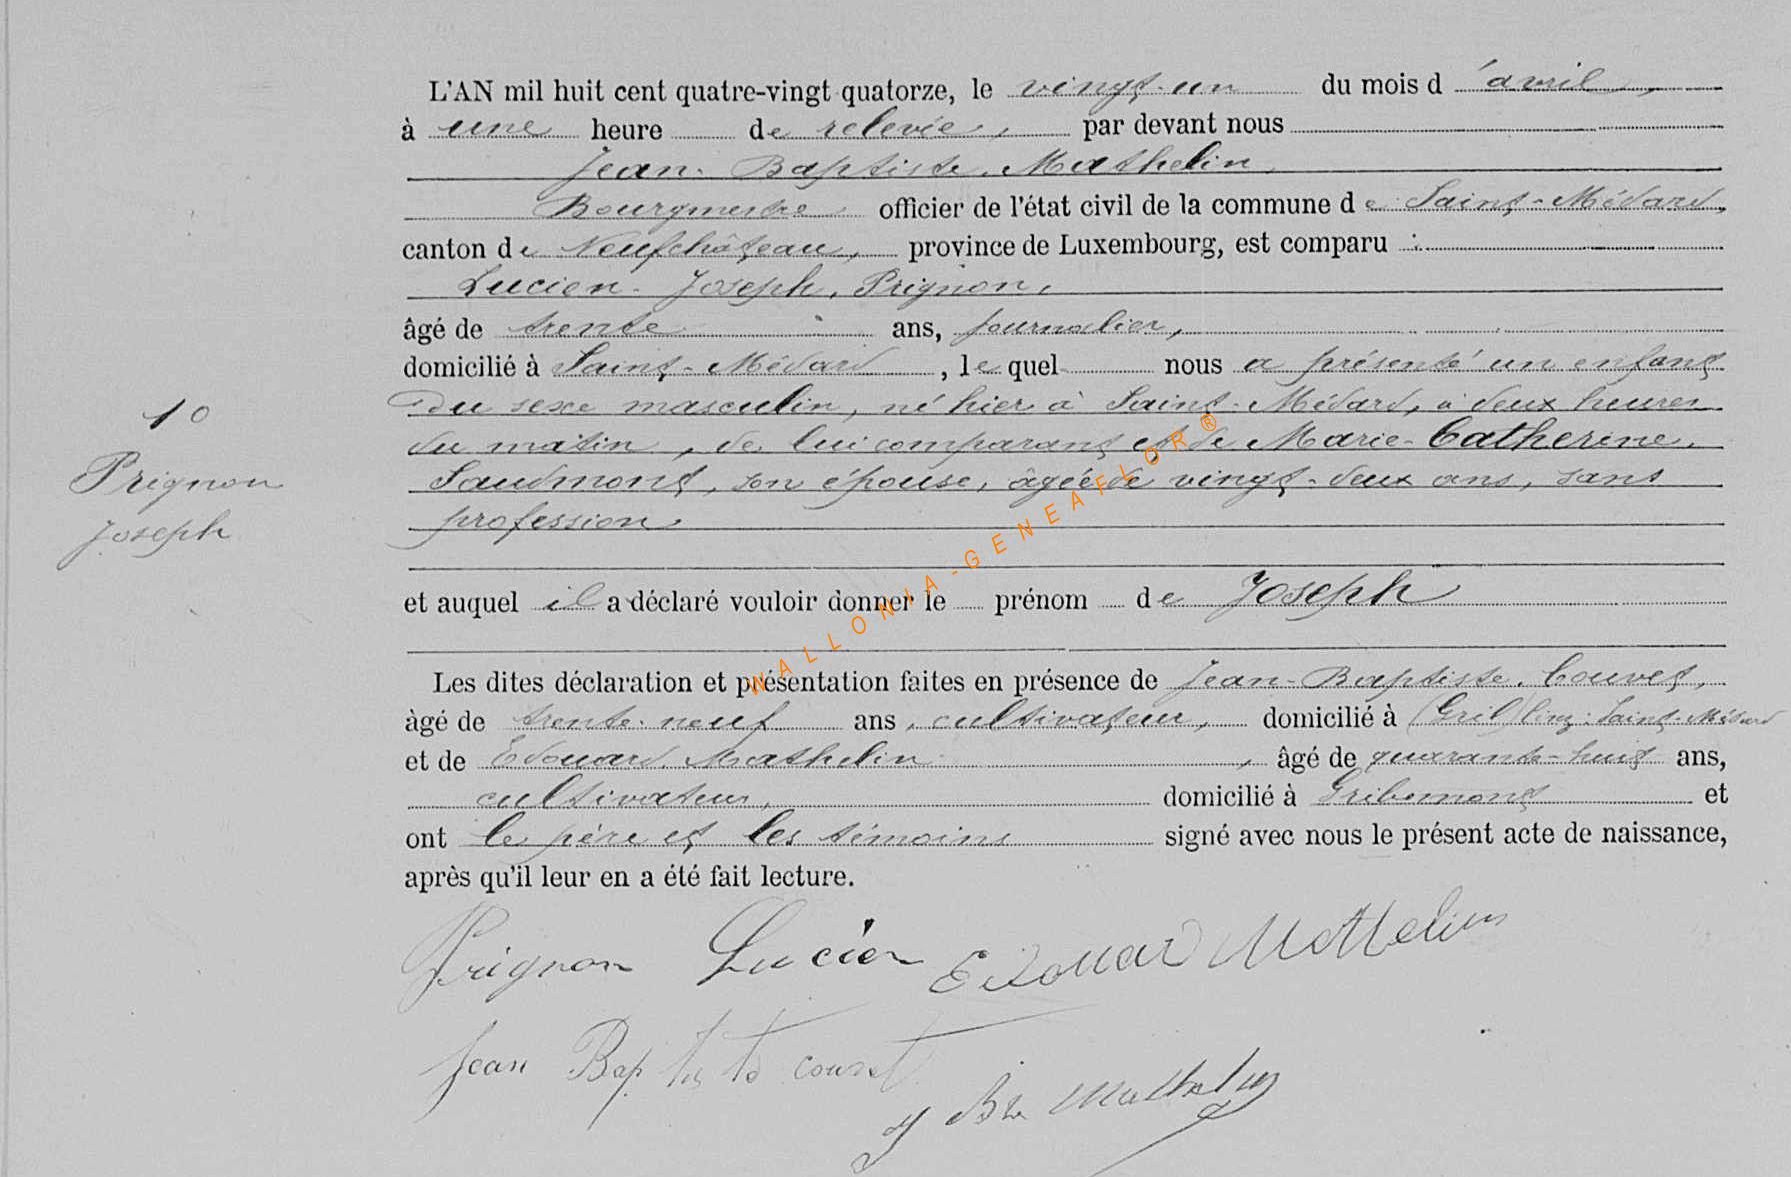 L'AN mil huit cent quatre-vingt quatorze, le vingt-un du mois d'avril,
à une heure de relevée, par devant nous
Jean-Baptiste Mathelin,
Bourgmestre officier de l'état civil de la commune de Saint-Médard,
canton de Neufchâteau, province de Luxembourg, est comparu :
Lucien-Joseph Prignon,
âgé de trente ans, journalier,
domicilié à Saint-Médard, lequel nous a présenté un enfant
du sexe masculin, né hier à Saint-Médard, à deux heures
du matin, de lui comparant et de Marie-Catherine
Saudmont, son épouse, âgée de vingt-deux ans, sans
profession.
10
Prignon
Joseph
et auquel il a déclaré vouloir donner le prénom de Joseph
Les dites déclaration et présentation faites en présence de Jean-Baptiste Couvet,
âgé de trente-neuf ans, cultivateur, domicilié à Saint-Médard
et de Edouard Mathelin, âgé de quarante-huit ans,
cultivateur, domicilié à Gribomont et
ont le père et les témoins signé avec nous le présent acte de naissance,
après qu'il leur en a été fait lecture.
Prignon Lucien Edouard Mathelin
Jean Baptiste couvet
J Bte Mathelin
WALLONIA-GENEAFLOR®